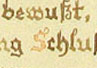 bewußt,
ng Schluß